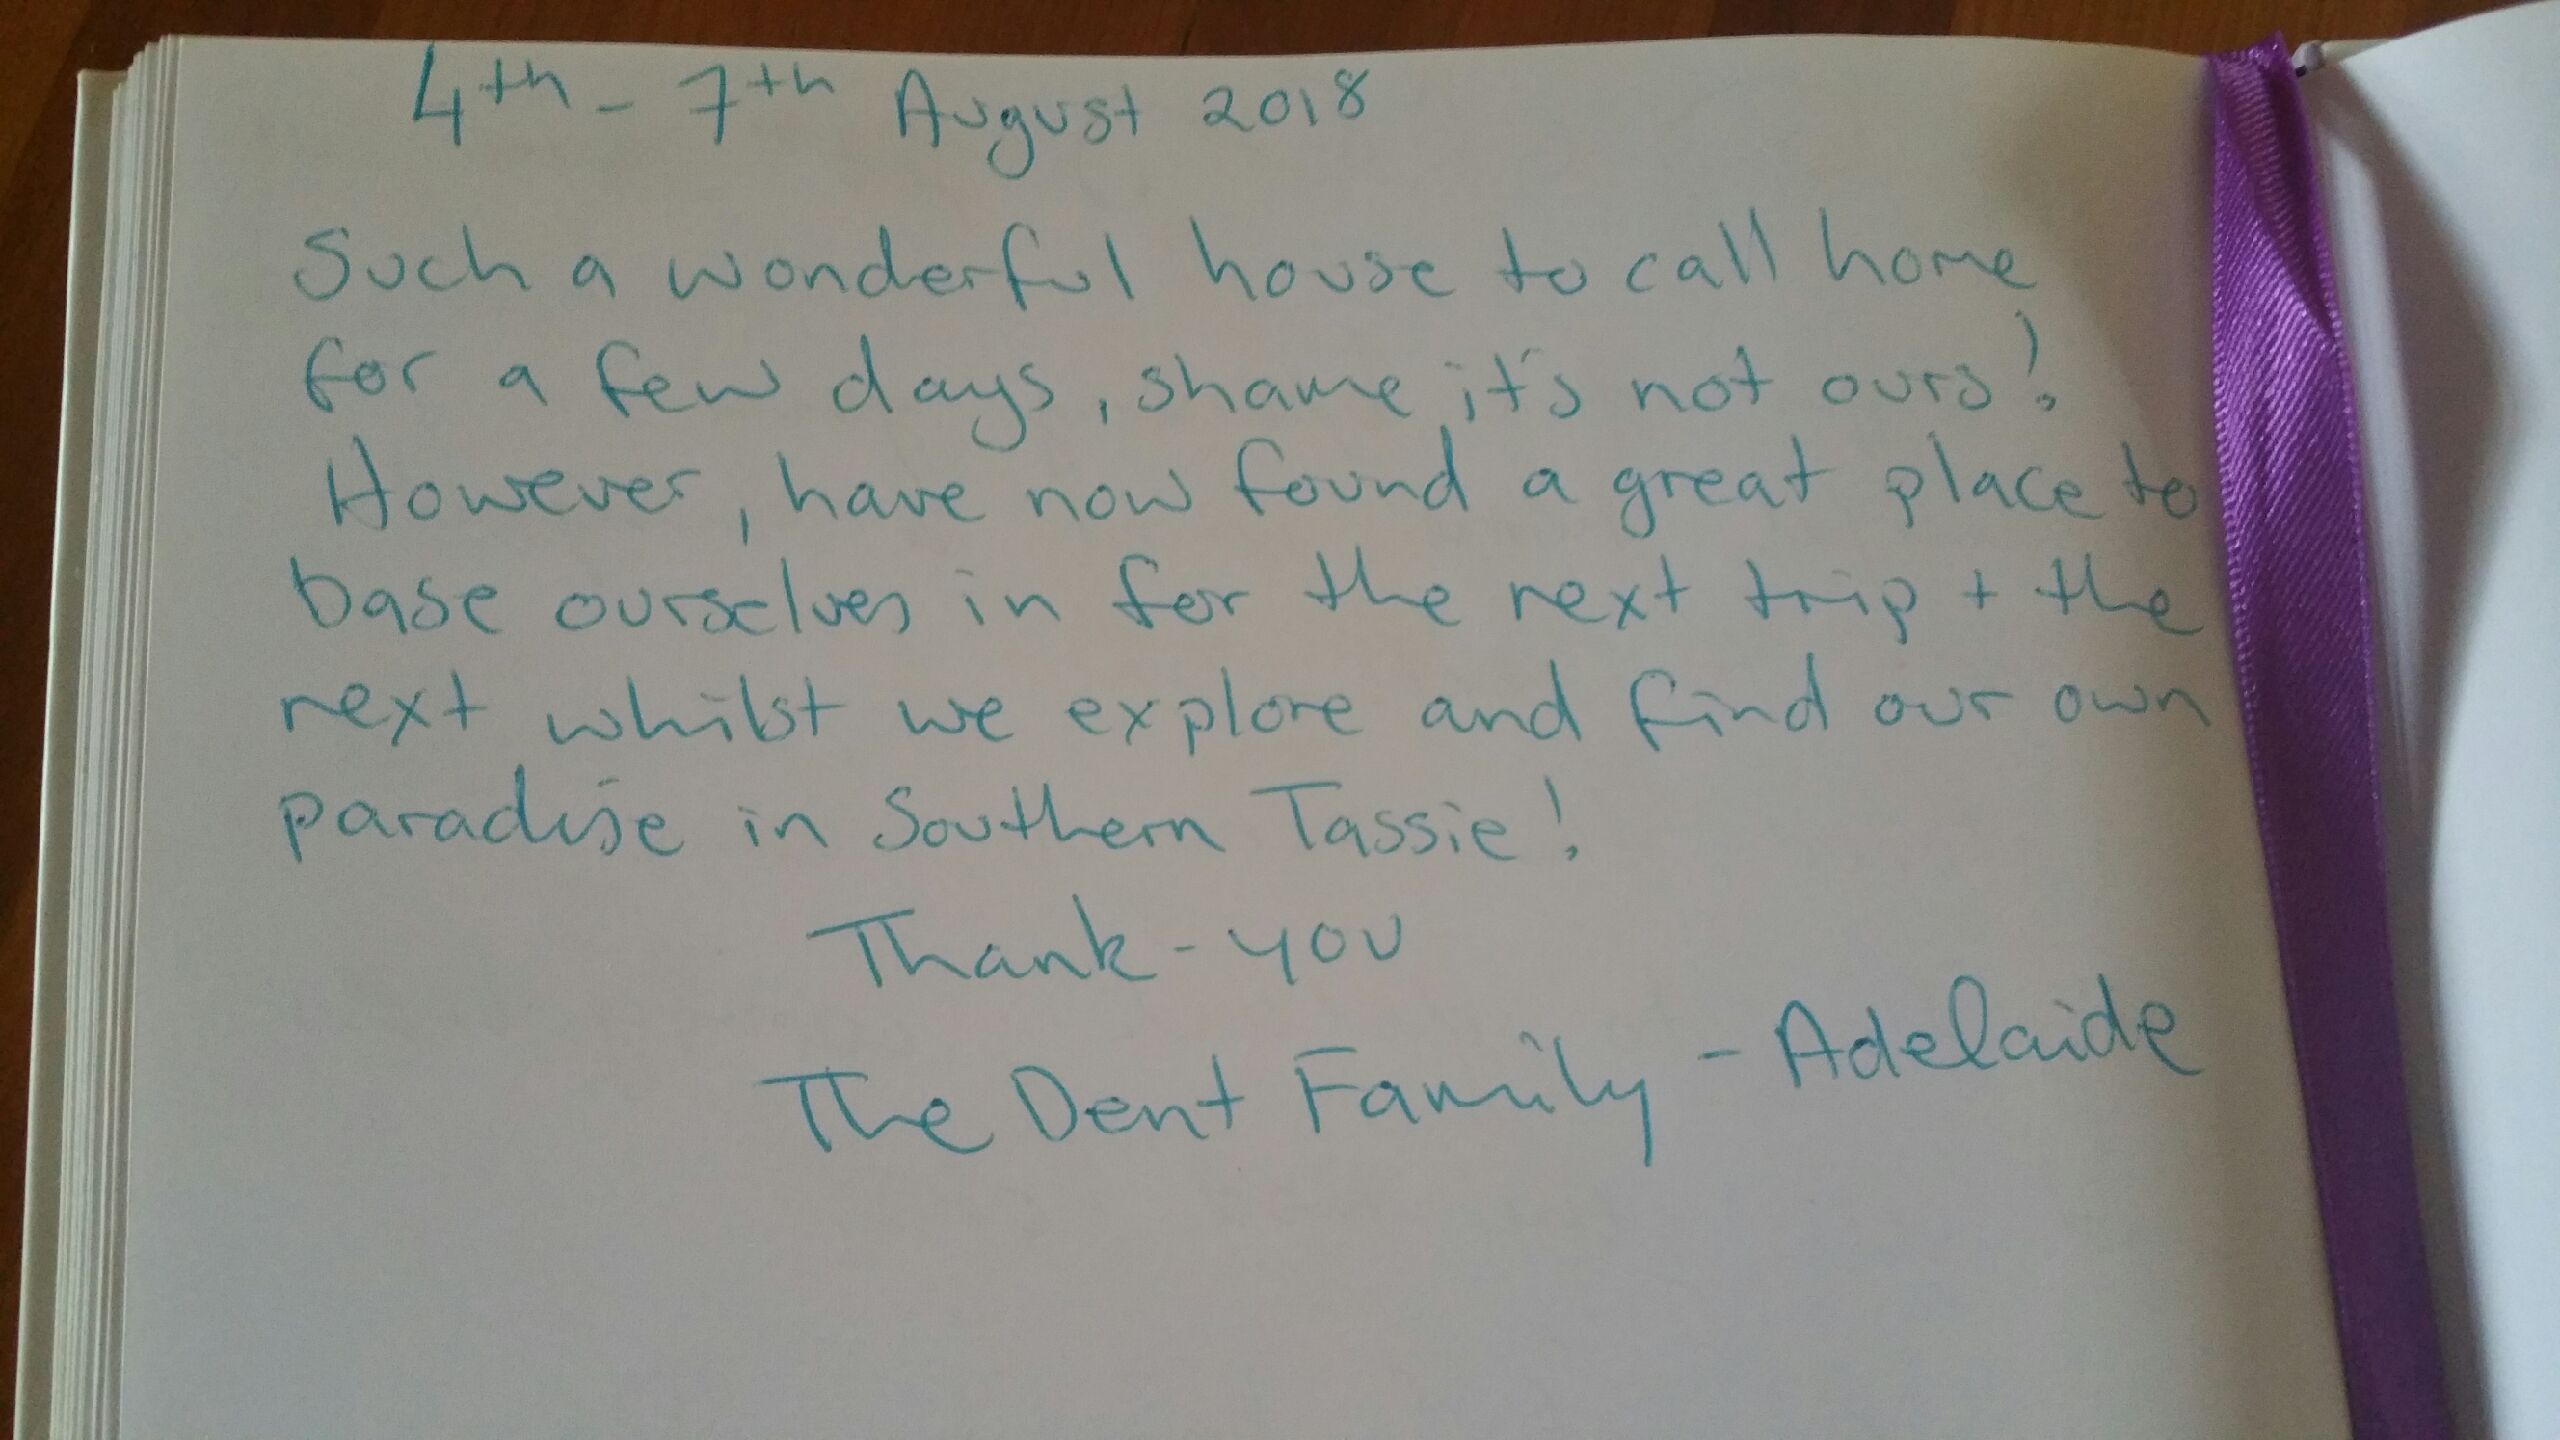 4th - 7th August 2018
Such a wonderful house to call home
for a few days, shame it's not ours!
However, have now found a great place to
base ourselves in for the next trip + the
next whilst we explore and find our own
paradise in Southern Tassie!
Thank-you
The Dent Family - Adelaide